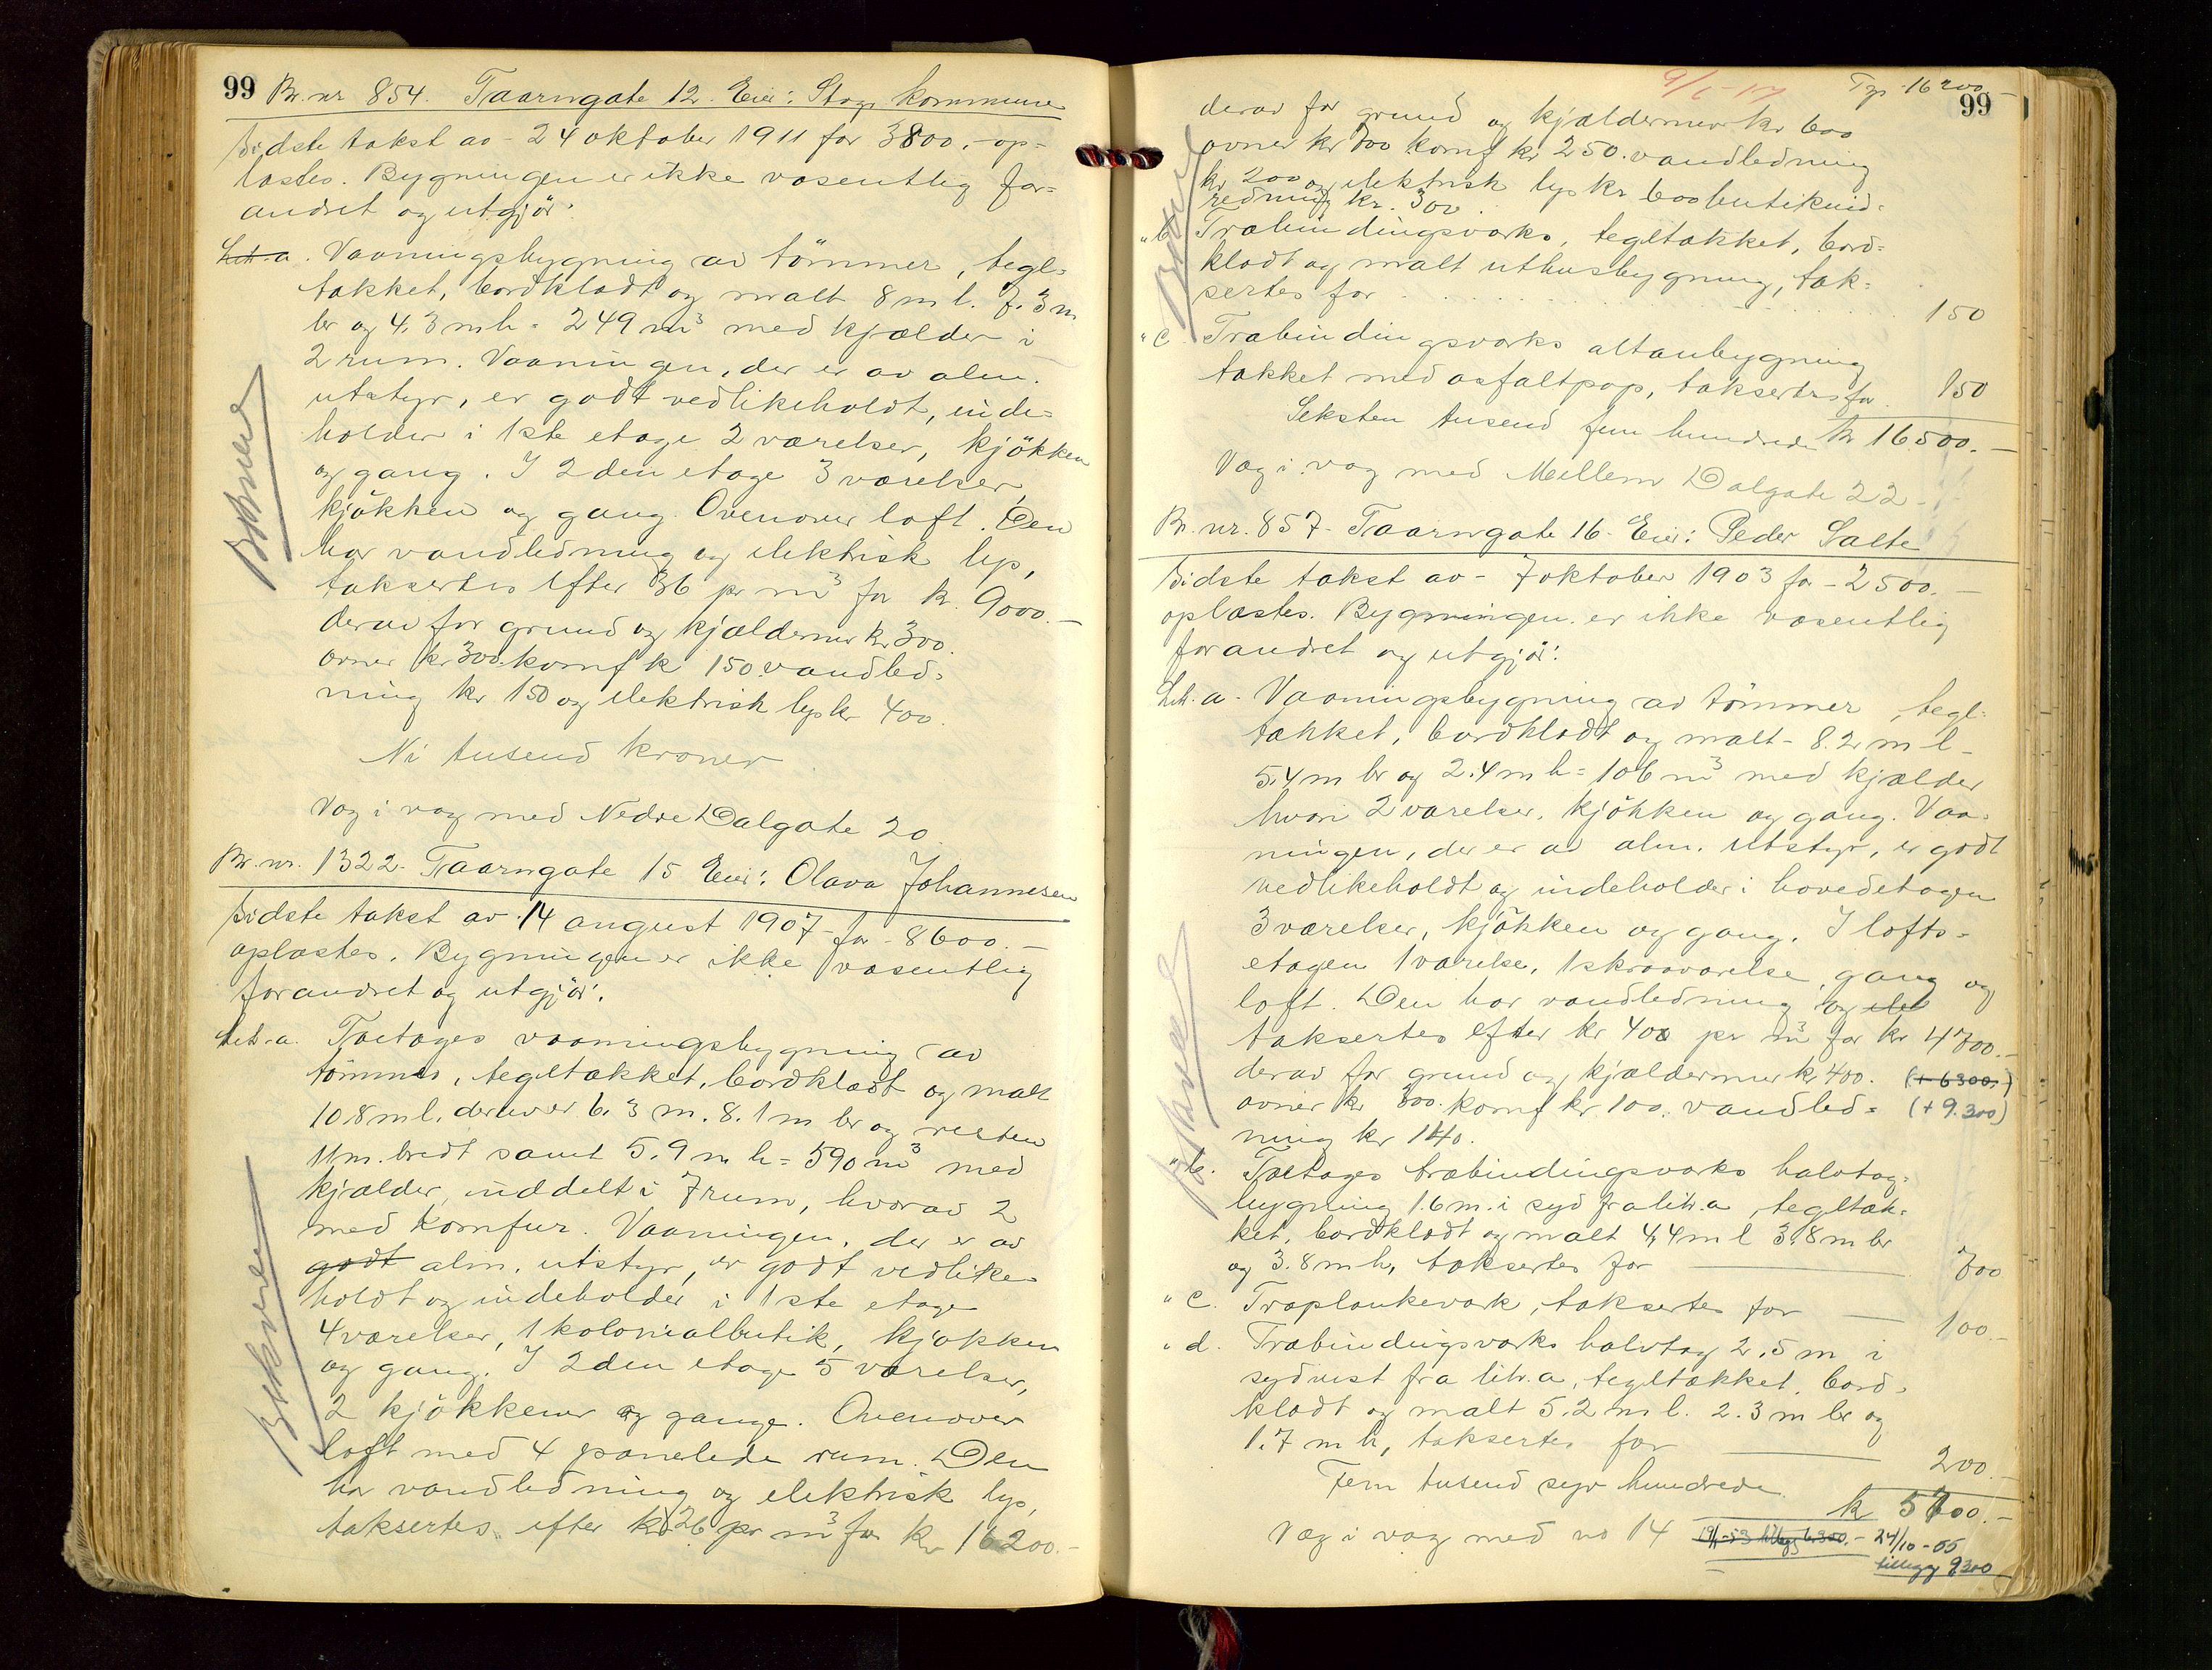 99 Br. nr 854. Taarngate 12. Eier: Stvgr kommune
Sidste takst av - 24 oktober 1911 for 3800.- op-
læstes. Bygningen er ikke væsentlig for-
andret og utgjör:
Litr. a. Vaaningsbygning av tömmer, tegl-
takket, bordklædt og malt 8 m l. 7.3 m
br og 4.3 m h = 249 m³ med kjælder i
2 rum. Vaaningen, der er av alm.
utstyr, er godt vedlikeholdt, inde-
holder i 1ste etage 2 værelser, kjökken
og gang. I 2den etage 3 værelser,
kjökken og gang. Ovenover loft. Den
har vandledning og elektrisk lys,
taksertes efter 36 pr m³ for kr. 9000.-
derav for grund og kjældermur kr 300.
ovner kr 300. komf k 150. vandled-
ning kr 150 og elektrisk lys kr 400.
Ni tusend kroner
Væg i væg med Nedre Dalgate 20
Br. nr. 1322. Taarngate 15 Eier: Olava Johannesen
Sidste takst av 14 august 1907 - for - 8600.-
oplæstes. Bygningen er ikke væsentlig
forandret og utgjör:
Litr. a. Toetages vaaningsbygning av
tömmer, tegltækket, bordklædt og malt
10.8 m l. derav er 6.3 m. 8.1 m br og resten
11 m. bredt samt 5.9 m h = 590 m³ med
kjælder, inddelt i 7 rum, hvorav 2
med komfur. Vaaningen, der er av
godt alm. utstyr, er godt vedlike-
holdt og indeholder i 1ste etage
4 værelser, 1 kolonialbutik, kjøkken
og gang. I 2den etage 5 værelser,
2 kjökkener og gange. Ovenover
loft med 4 panelede rum. Den
har vandledning og elektrisk lys,
taksertes efter kr 26 pr m³ for kr 16200.-
16200.-
99
derav for grund og kjældermur kr 600
ovner kr 700 komf kr 250. vandledning
kr 200 og elektrisk lys kr 600 butikind-
redning kr. 300.
" b Træbindingsværks, tegltækket, bord-
klædt og malt uthusbygning, tak-
sertes for . . . . . . . . . . 150
" c. Træbindingsværks altanbygning
takket med asfaltpap, taksertes for 150
Seksten tusend fem hundrede kr 16500.-
Væg i væg med Mellem Dalgate 22-
Br. nr. 857- Taarngate 16- Eier: Peder Salte
Sidste takst av - 7 oktober 1903 for - 2500.-
oplæstes. Bygningen er ikke væsentlig
forandret og utgjör:
Litr. a- Vaaningsbygning av tömmer, tegl-
tækket, bordklædt og malt- 8.2 m l-
5.4 m br og 2.4 m h = 106 m³ med kjælder
hvori 2 værelser, kjökken og gang. Vaa-
ningen, der er av alm. utstyr, er godt
vedlikeholdt og indeholder i hovedetagen
3 værelser, kjökken og gang. I lofts-
etagen 1 værelse, 1 skraaværelse, gang og
loft. Den har vandledning og ele
taksertes efter kr 400 pr m³ for kr 4700.-
derav for grund og kjældermur kr 400. (+ 6300.-)
ovner kr 300. komf kr 100. vandled- (+ 9.300)
ning kr 140.
" b. Toetages træbindingsværks halvtag-
bygning 1.6 m. i syd fra litr. a, tegltæk-
ket, bordklædt og malt 4,4 m l 3.8 m br
og 3.8 m h, taksertes for 700
" c. Træplankeværk, taksertes for 100.-
" d. Træbindingsværks halvtag 2.5 m i
sydvest fra litr. a, tegltækket, bord-
klædt og malt 5.2 m l. 2.3 m br og
1.7 m h, taksertes for 200.-
Fem tusend syv hundrede k 5700.-
Væg i væg med no 14 24/10-55
tillegg 9300